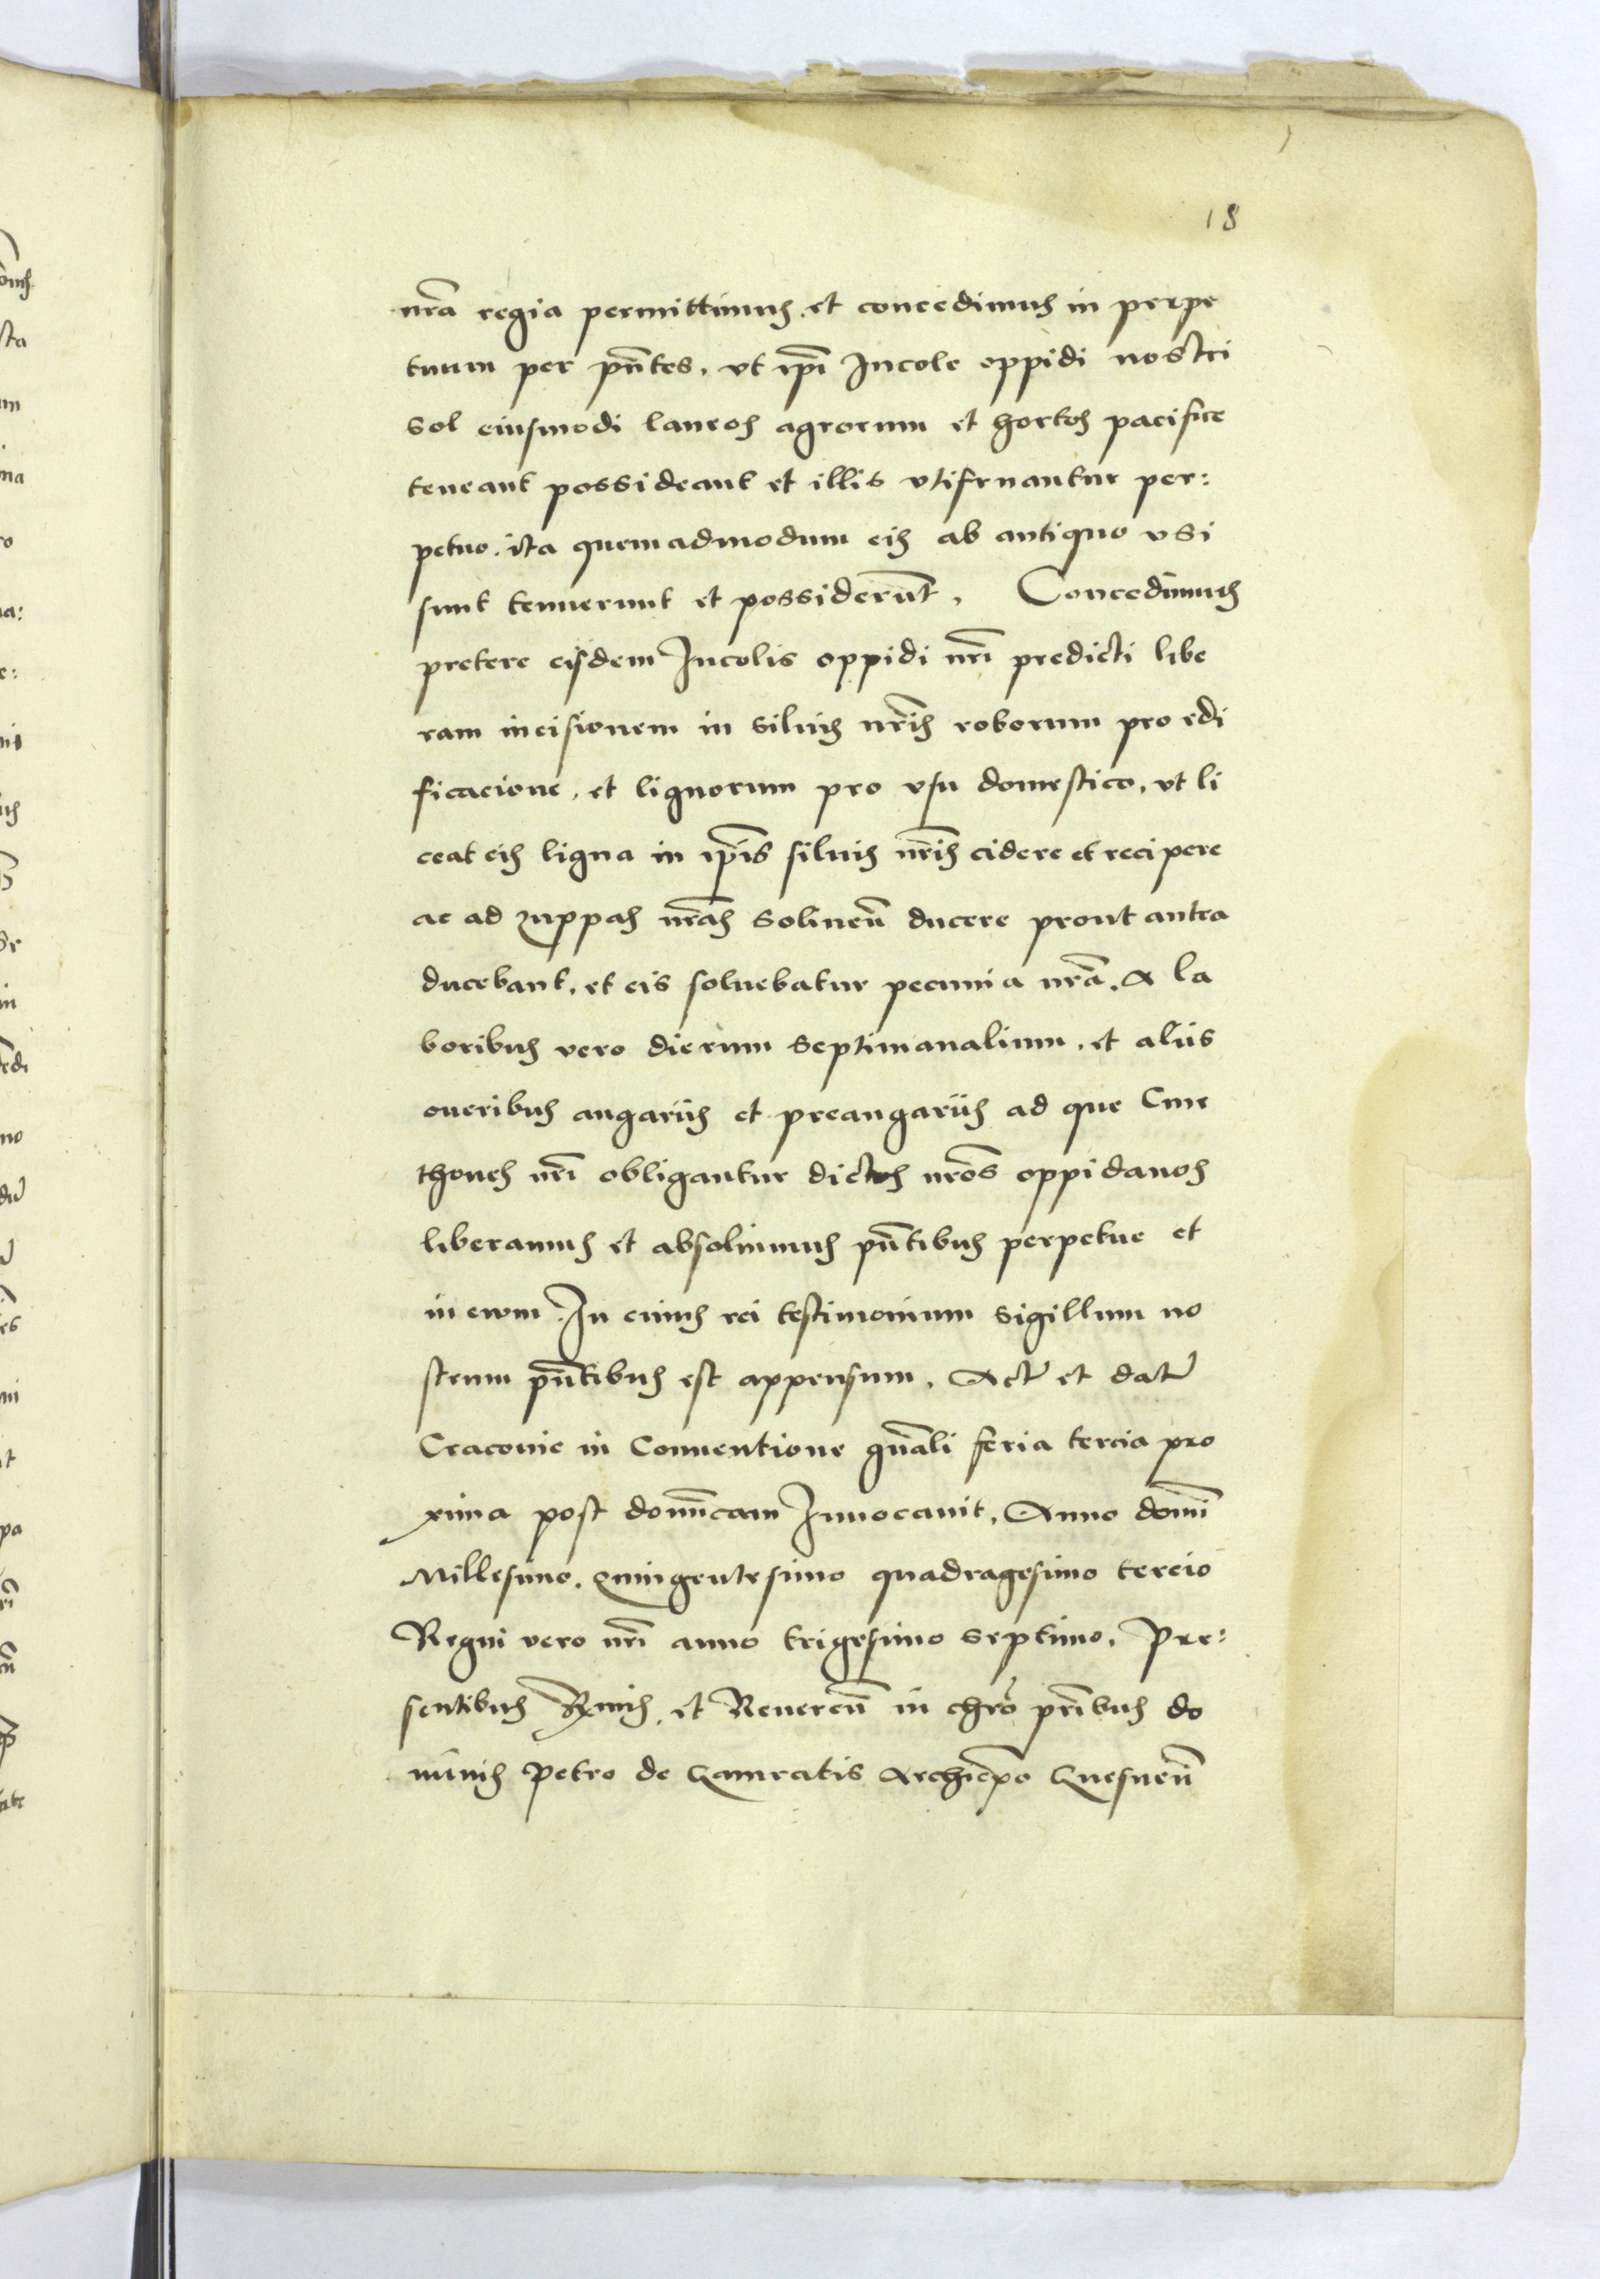 18
nrã regia permittimus et concedimus in perpe
tuum per pñtes. vt ipĩ Incole oppidi nostri
Sol eiusmodi laneos agrorum et hortos pacifice
teneant possideant et illis vtifruantur per:
petuo. ita quemadmodum eis ab antiquo vsi
sunt tenuerunt et possiderũt. Concedimus
pretere eisdem Incolis oppidi nrĩ predicti libe
ram incisionem in siluis nrĩs roborum pro edi
ficacione, et lignorum pro vsu domestico, vt li
ceat eis ligna in ipĩs siluis nrĩs cidere et recipere
ac ad zuppas nrãs Solineñ ducere prout antea
ducebant, et eis soluebatur pecunia nrã. A la
boribus vero dierum septimanalium, et alijs
oneribus angarijs et preangarijs ad que Cme
thones nrĩ obligantur dictos nrõs oppidanos
liberamus et absoluimus pñtibus perpetue et
in ewm. In cuius rei testimonium Sigillum no
strum pñtibus est appensum. Actũ et datũ
Cracouie in Conuentione gñali feria tercia pro
xima post domĩcam Inuocauit. Anno domĩ
Millesimo. quingentesimo quadragesimo tercio
Regni vero nrĩ anno trigesimo septimo. Pre:
sentibus Rmis, et Reuereñ in chrõ pribus do
minis Petro de Gamratis Archiepõ Gnesneñ